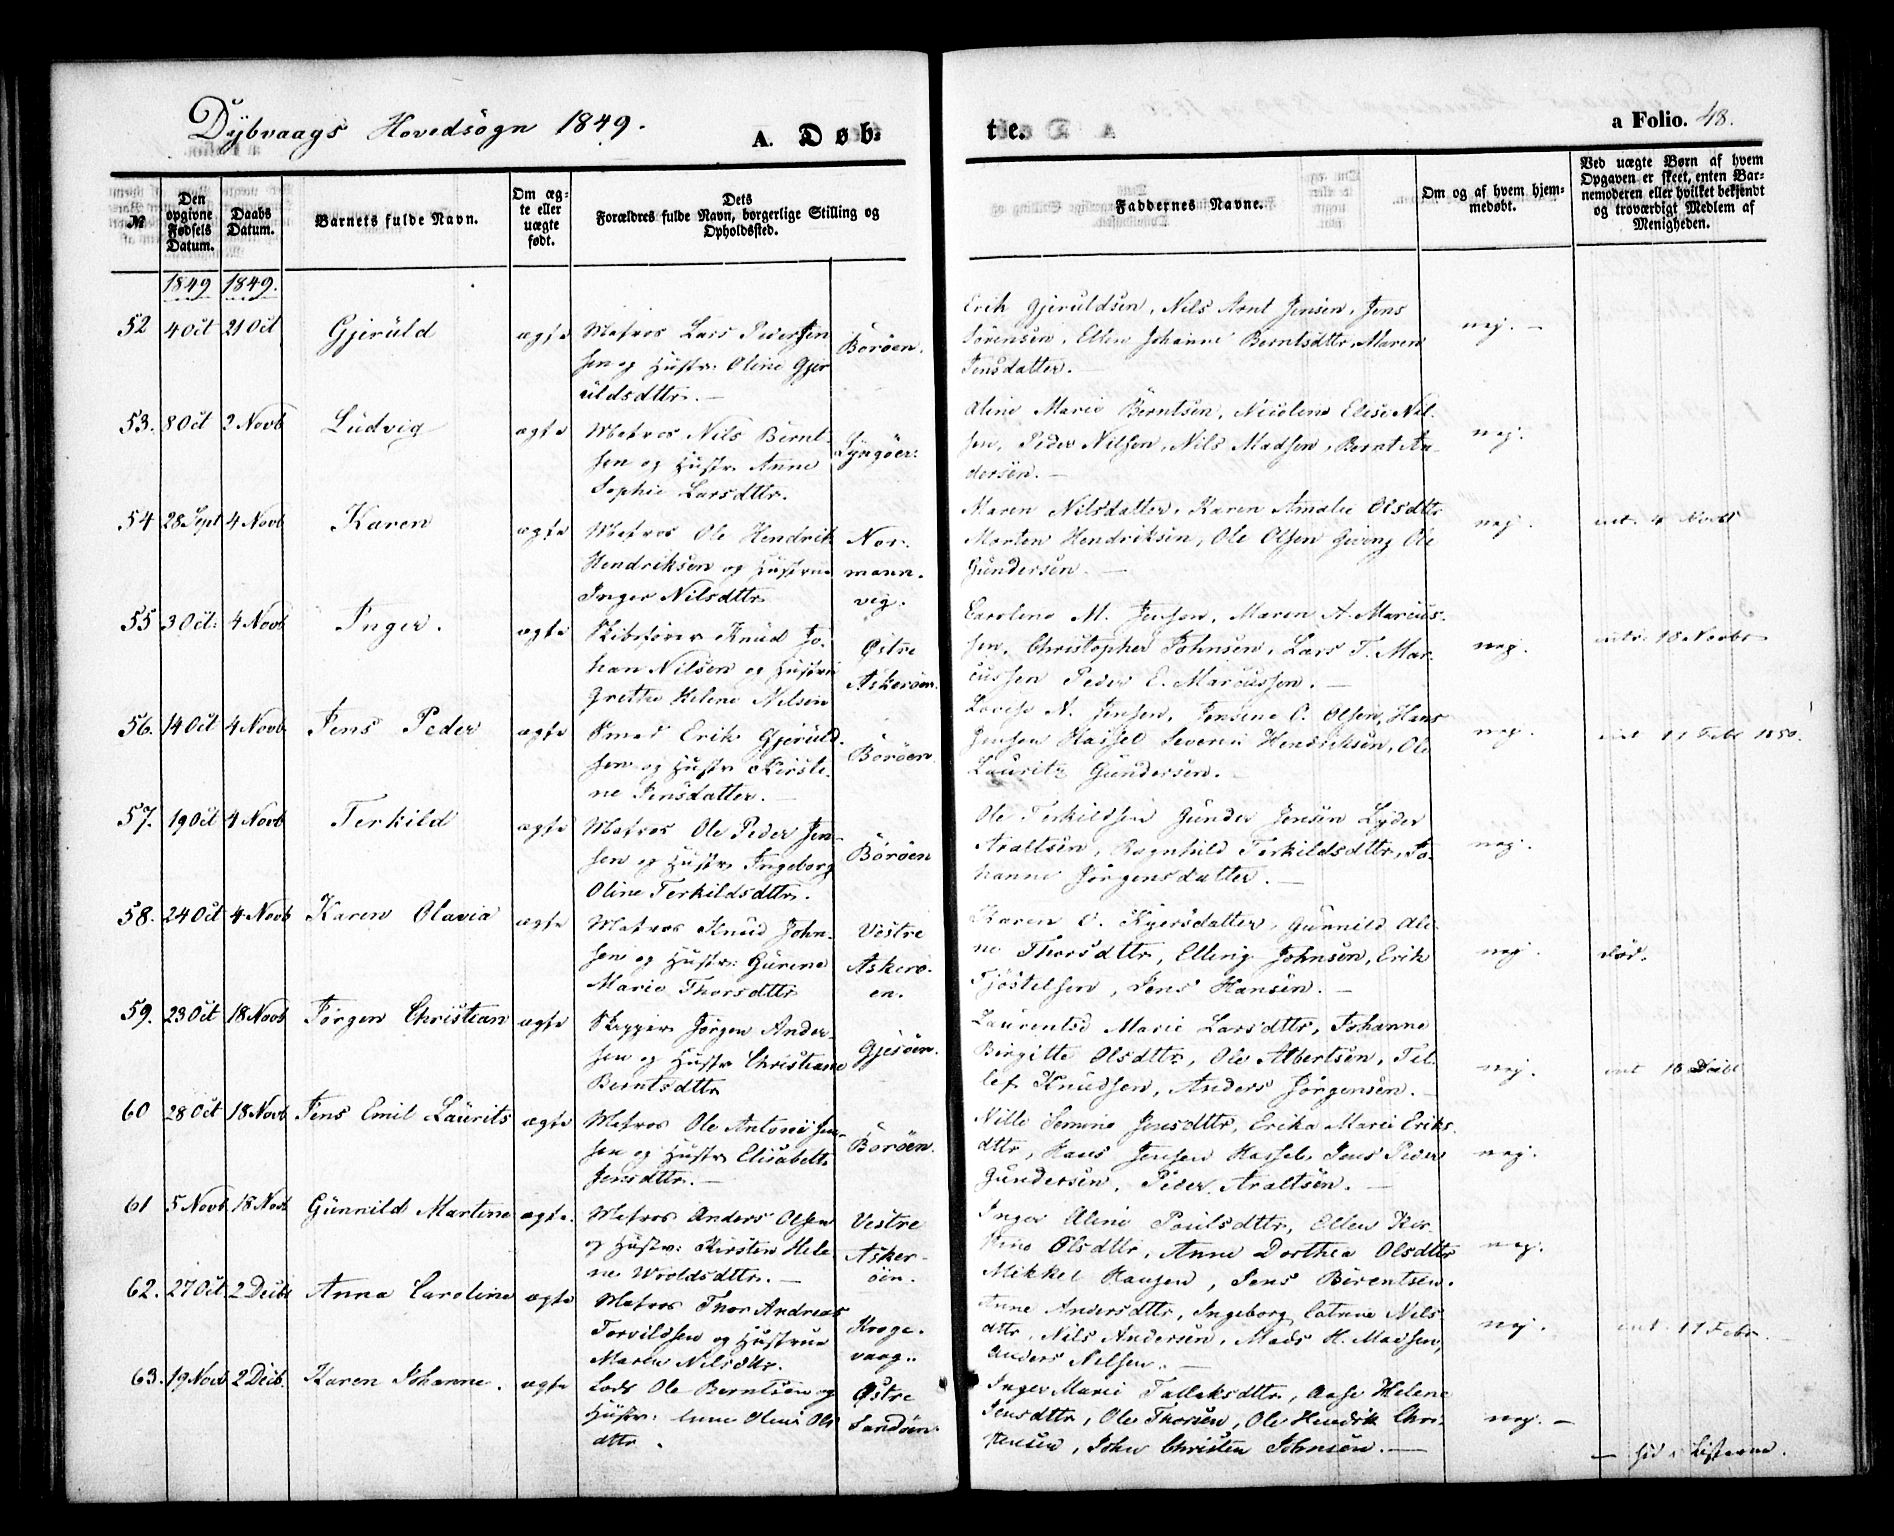 Dybvaags Hovedsogn 1849.
A. Døb-
te.
a Folio. 48.
№
Den opgivne Fødsels Datum.
Daabs Datum.
Barnets fulde Navn.
Om ægte eller uægte født.
Dets
Forældres fulde Navn, borgerlige Stilling og
Opholdssted.
Faddernes Navne.
Om og af hvem hjem-
medøbt.
Ved uægte Børn af hvem
Opgaven er skeet, enten Bar-
nemoderen eller hvilket bekjendt
og troværdigt Medlem af
Menigheden.
1849 1849.
52 4 Oct 21 Oct Gjeruld ægte Matros Lars Peder Jen
sen og Hustr: Oline Gjer
uldsdttr. —
Boröen.
Erik Gjeruldsen, Nils Arnt Jensen, Jens
Sörensen, Ellen Johanne Berntsdttr, Maren
Jensdatter. —
nej. —
53. 8 Oct 2 Novb Ludvig ægte Matros Nils Bernt-
sen og Hustr. Anne
Sophie Larsdttr.
Lyngöer:
Aline Marie Berntsen, Nicoline Elise Nil-
sen, Peder Nilsen, Nils Madsen, Bernt An-
dersen. —
nej.
54 28 Sept 4 Novb Karen ægte Matros Ole Hendrik
Hendriksen og Hustrue
Inger Nilsdttr
Nor-
mann-
vig.
Maren Nilsdatter, Karen Amalie Olsdttr
Morten Hendriksen, Ole Olsen Gieving Ole
Gundersen. —
nej. 4 Novb
55 3 Oct: 4 Novb Inger. ægte Skibsförer Knud Jo-
han Nilsen og Hustru
Grethe Helene Nilsen
Östre
Askeröen.
Caroline M. Jensen, Maren A. Marcus-
sen, Christopher Johnsen, Lars T. Mar-
cussen Peder E. Marcussen. —
nej. 18 Novbr
56. 14 Oct 4 Novb. Jens Peder ægte Smed Erik Gjeruld-
sen og Hustr Kirsti-
ne Jensdatter. —
Boröen
Lovise N. Jensen, Jensine C. Olsen, Hans
Jensen Hassel Severin Hendriksen, Ole
Lauritz Gundersen.
nej. 11 Febr 1850.
57. 19 Oct 4 Novb Terkild ægte Matros Ole Peder Jen-
sen og Hustr Ingeborg
Oline Terkildsdttr.
Boröen
Ole Terkildsen Gunder Jensen Lyder
Araltsen, Ragnhild Terkildsdttr, Jo-
hanne Jörgensdatter. —
nej.
58. 24 Oct 4 Novb Karen Olavia ægte Matros Knud John-
sen og Hustr: Gurine
Marie Thorsdttr
Vestre
Askerö-
en.
Karen O. Kjersdatter, Gunnild Ali-
ne Thorsdttr, Elling Johnsen, Erik
Tjöstelsen, Jens Hansen. —
nej. död.
59. 23 Oct 18 Novb. Jörgen Christian ægte Skipper Jörgen Ander-
sen og Hustr Christiane
Berntsdttr
Gjesöen.
Laurentse Marie Larsdttr, Johanne
Birgitte Olsdttr, Ole Albertsen, Tel-
lef Knudsen, Anders Jörgensen. —
nej. 16 Decbr
60 28 Oct 18 Novb Jens Emil Laurits ægte Matros Ole Antoni Jen-
sen og Hustr Elisabeth
Jensdttr. —
Boröen.
Nille Semine Jensdttr, Erika Marie Eriks-
dttr, Hans Jensen Hassel Jens Peder
Gundersen, Peder Araltsen. —
nej.
61 5 Novb 18 Novb Gunnild Martine ægte. Matros Anders Olsen
og Hustr: Kirsten Hele-
ne Wroldsdttr. —
Vestre
Asker-
öen.
Inger Aline Poulsdttr, Ellen Kir-
stine Olsdttr, Anne Dorthea Olsdttr
Mikkel Hansen, Jens Berentsen.
nej.
62. 27 Oct. 2 Decbr Anna Caroline ægte Matros Thor Andreas
Torvildsen og Hustrue
Maren Nilsdttr.
Kroge-
vaag.
Anne Andersdttr, Ingeborg Catrine Nils-
dttr, Nils Andersen, Mads H. Madsen,
Anders Nilsen. —
nej. 17 Febr.
63. 19 Nov 2 Decb. Karen Johanne. ægte Lods Ole Berntsen og
Hustr: Anne Oline Ols
dttr.
Östre
Sandöen.
Inger Marie Tallaksdttr, Aase Helene
Jensdttr, Ole Thorsen, Ole Hendrik Chri-
stensen, John Christen Johnsen. —
nej. —